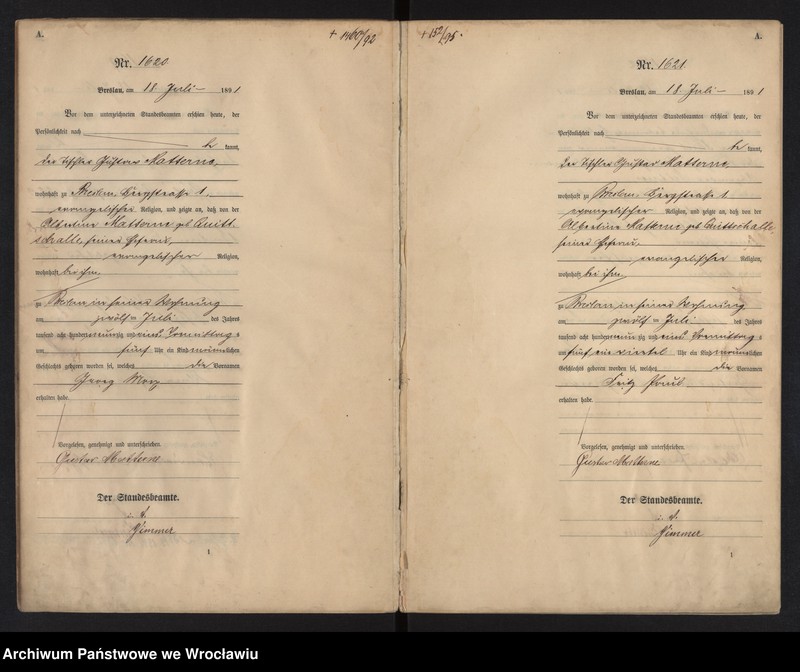 A.
+ 1460/92
Nr. 1620
Breslau, am 18 Juli 1891
Vor dem unterzeichneten Standesbeamten erschien heute, der
Persönlichkeit nach
kannt,
der Tischler Gustav Matterne,
wohnhaft zu Breslau, 1,
evangelischer Religion, und zeigte an, daß von der
Albertine Matterne geb.
seiner Ehefrau,
evangelischer Religion,
wohnhaft bei ihm,
zu Breslau in seiner Wohnung
am zwölften Juli des Jahres
tausend acht hundert neunzig und eins Vormittags
um fünf Uhr ein Kind männlichen
Geschlechts geboren worden sei, welches die Vornamen
Georg Max
erhalten habe.
Vorgelesen, genehmigt und unterschrieben.
Gustav Matterne
Der Standesbeamte.
Zimmer
1
+ 152/95.
A.
Nr. 1621
Breslau, am 18 Juli 1891
Vor dem unterzeichneten Standesbeamten erschien heute, der
Persönlichkeit nach
kannt,
der Tischler Gustav Matterne,
wohnhaft zu Breslau, 1
evangelischer Religion, und zeigte an, daß von der
Albertine Matterne geb.
seiner Ehefrau,
evangelischer Religion,
wohnhaft bei ihm,
zu Breslau in seiner Wohnung
am zwölften Juli des Jahres
tausend acht hundert neunzig und eins Vormittags
um fünf ein viertel Uhr ein Kind männlichen
Geschlechts geboren worden sei, welches die Vornamen
Fritz Paul
erhalten habe.
Vorgelesen, genehmigt und unterschrieben.
Gustav Matterne
Der Standesbeamte.
Zimmer
1
Archiwum Państwowe we Wrocławiu